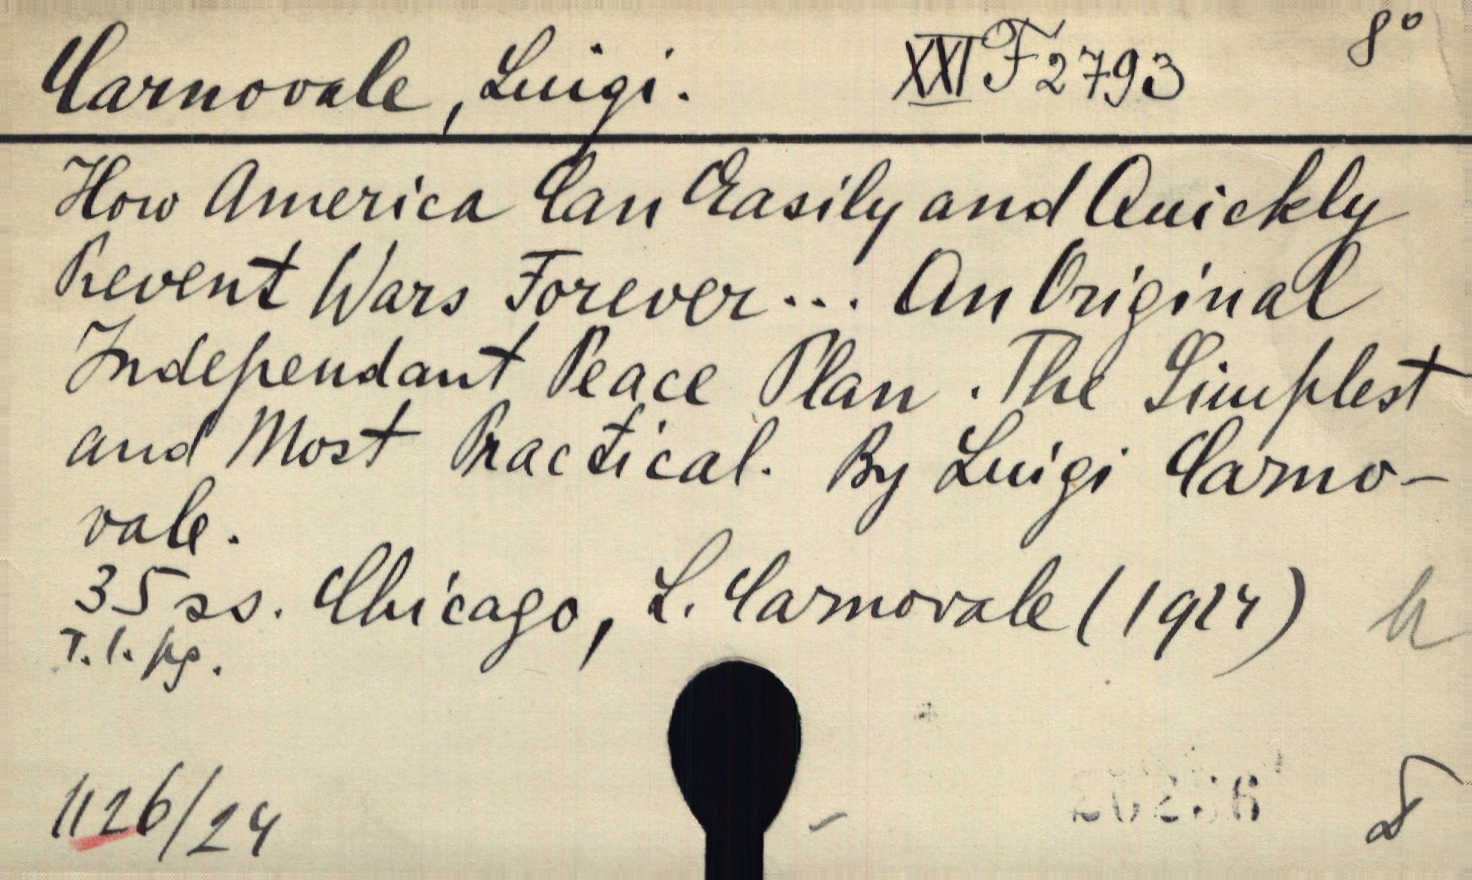 Carnovale, Luigi. XXI F 2793 8°
How America Can Easily and Quickly
Prevent Wars Forever... An Original
Independant Peace Plan. The Simplest
and Most Practical. By Luigi Carno-
vale.
35 ss. Chicago, L. Carnovale (1924)
T. l. pg.
1126/24